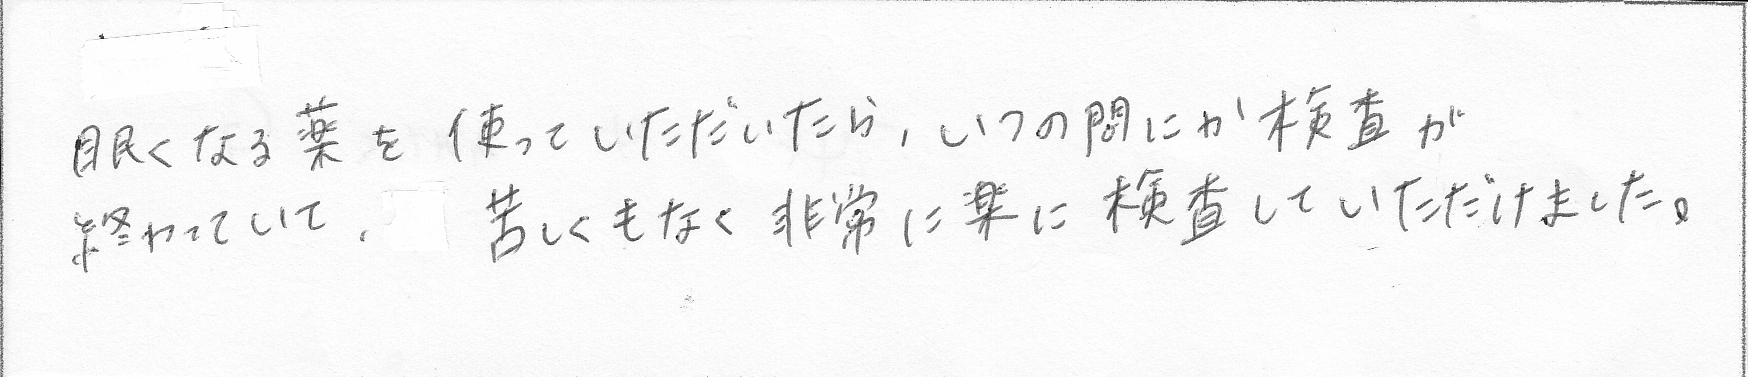 眠くなる薬を使っていただいたら、いつの間にか検査が
終わっていて、苦しくもなく非常に楽に検査していただけました。